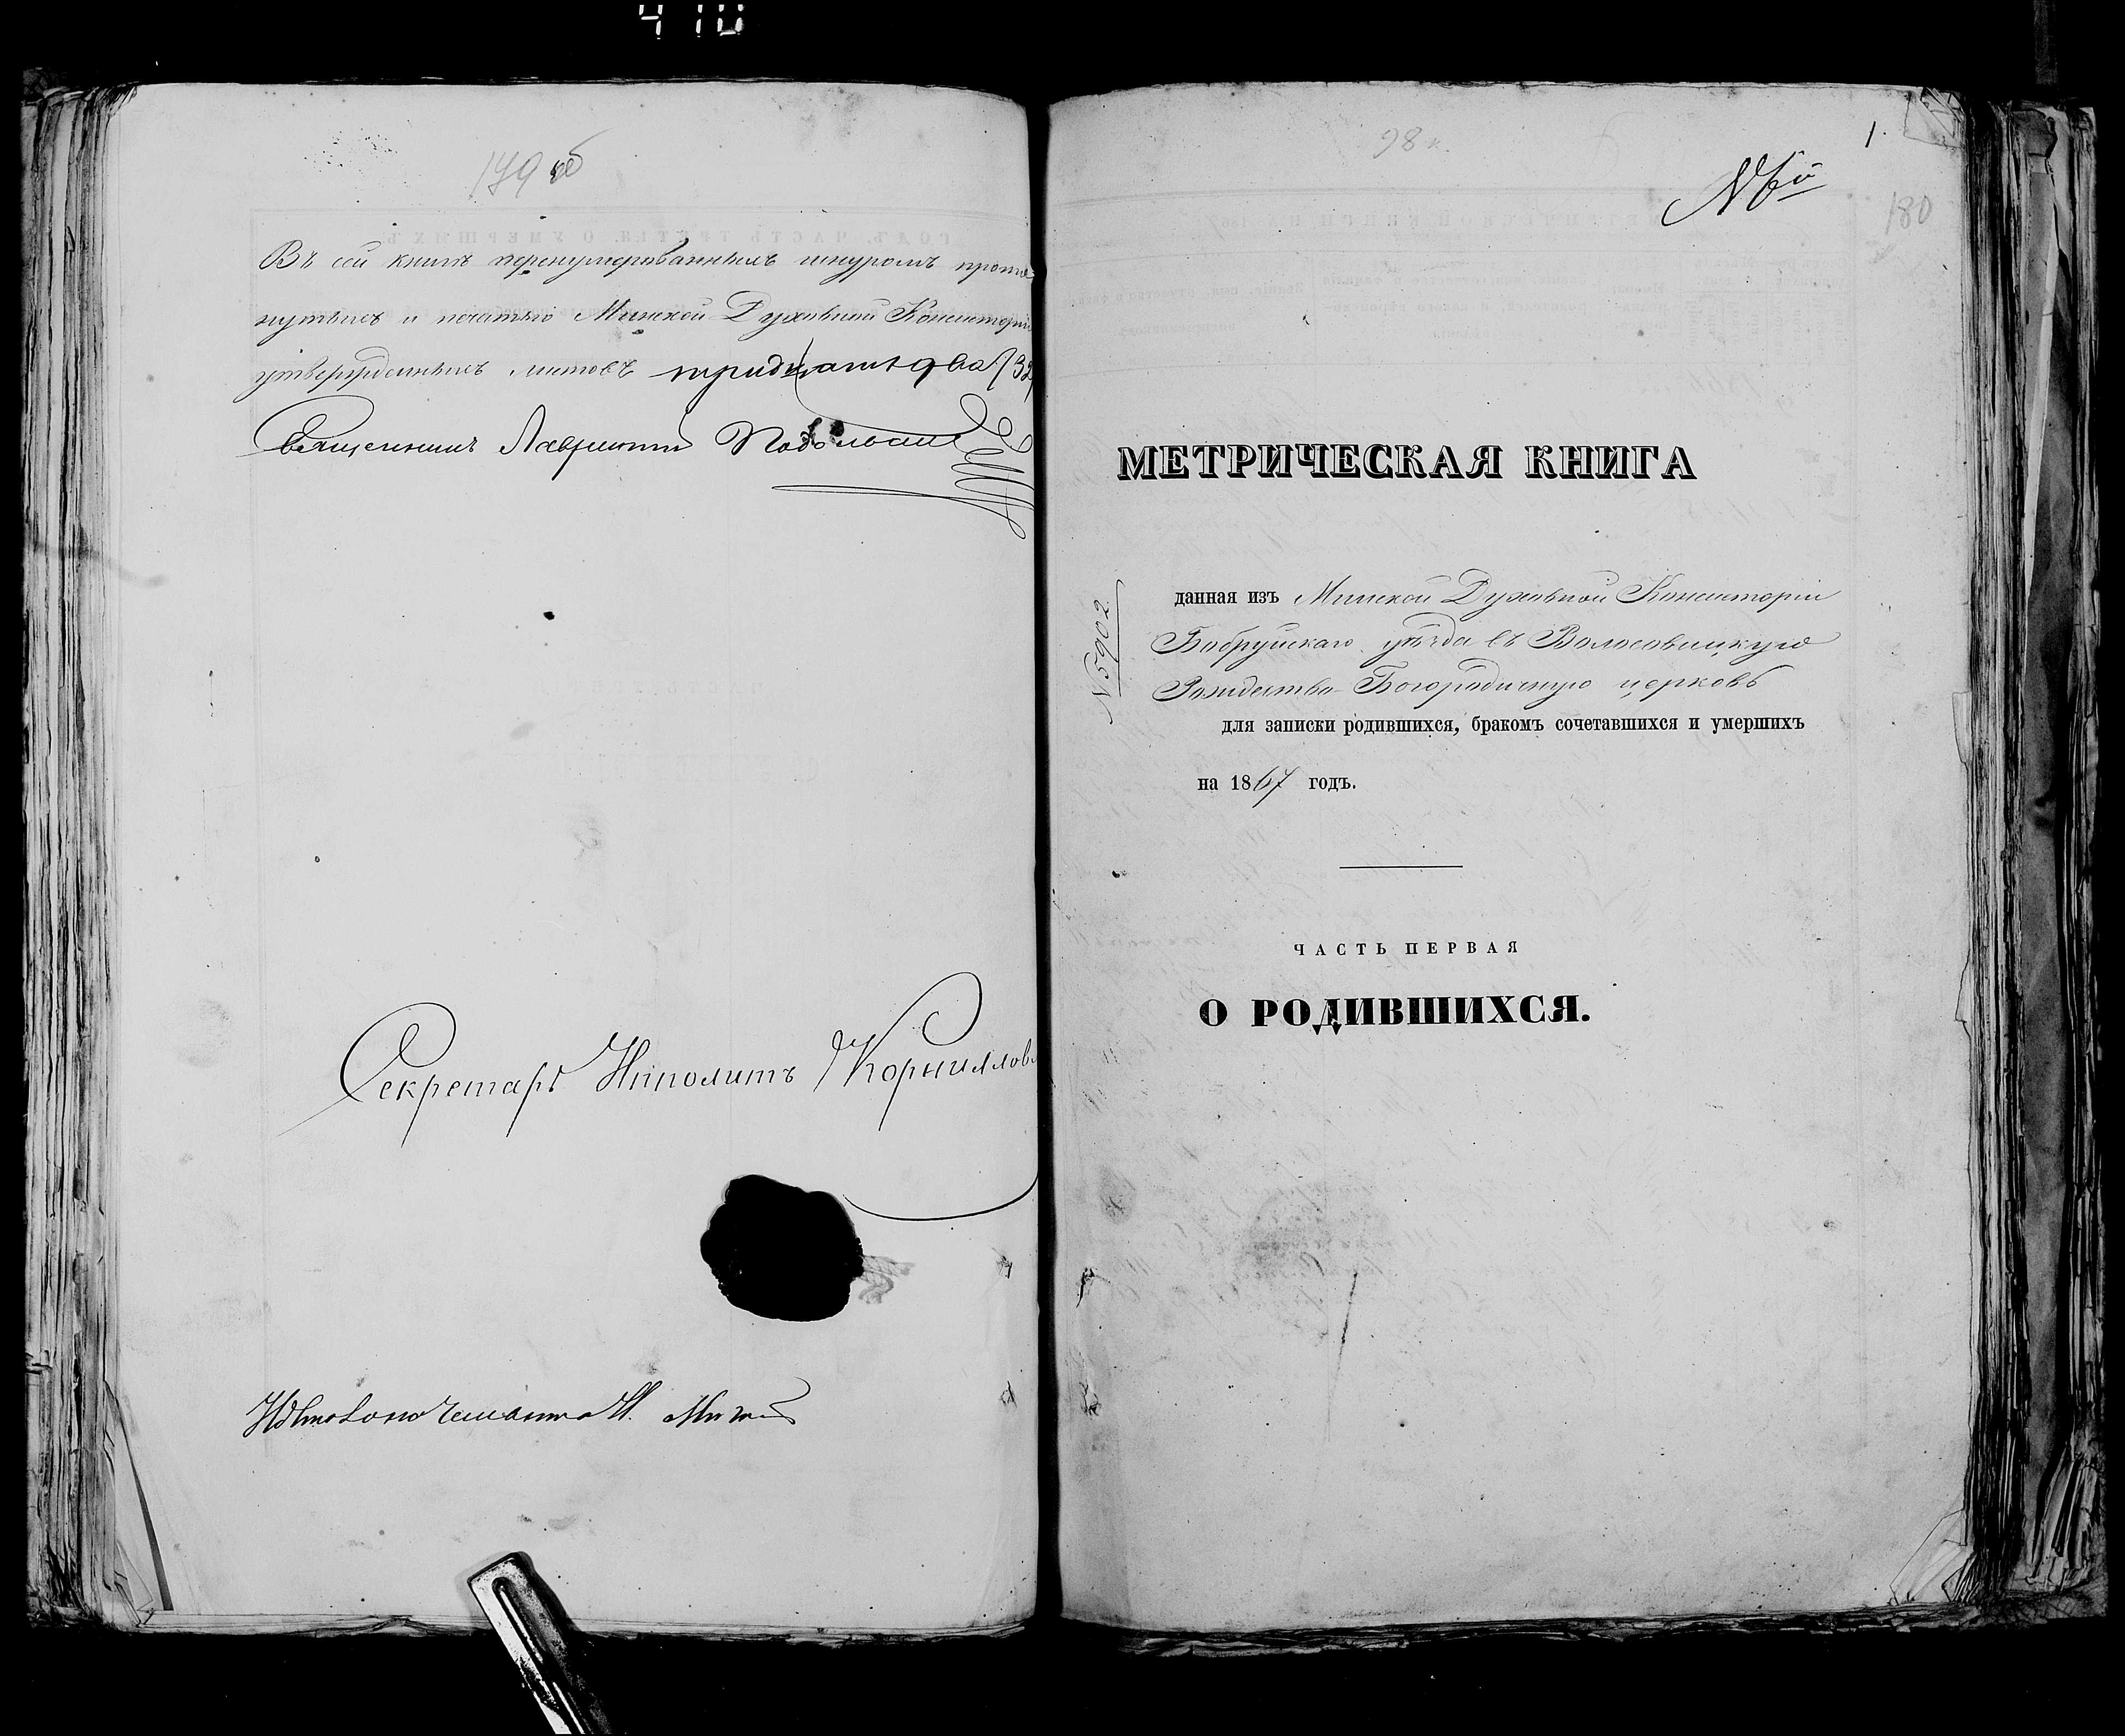 410
179 об
Въ сей книгѣ перенумерованныхъ шнуромъ протя-
нутыхъ и печатью Минской Духовной Консисторіи
утвержденныхъ листовъ тридцать два (32)
Священникъ Лаврентій
Секретарь Иполитъ Корниллов
98 к.
1.
180
МЕТРИЧЕСКАЯ КНИГА
№ 5902
данная изъ Минской Духовной Консисторіи
Бобруйскаго уѣзда въ Волосовицкую
Рождество-Богородичную церковь
для записки родившихся, бракомъ сочетавшихся и умершихъ
на 1867 годъ.
ЧАСТЬ ПЕРВАЯ
О РОДИВШИХСЯ.